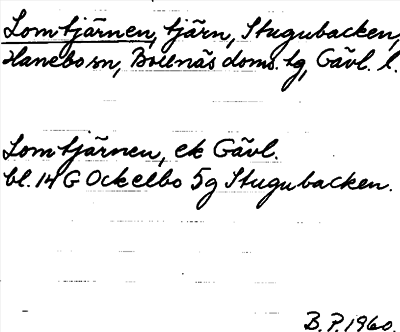 Lomtjärnen, tjärn, Stugubacken,
Hanebo sn, Bollnäs doms. tg, Gävl. l.
Lomtjärnen, ek Gävl.
bl. 14 G Ockelbo 5g Stugubacken.
B.P. 1960.